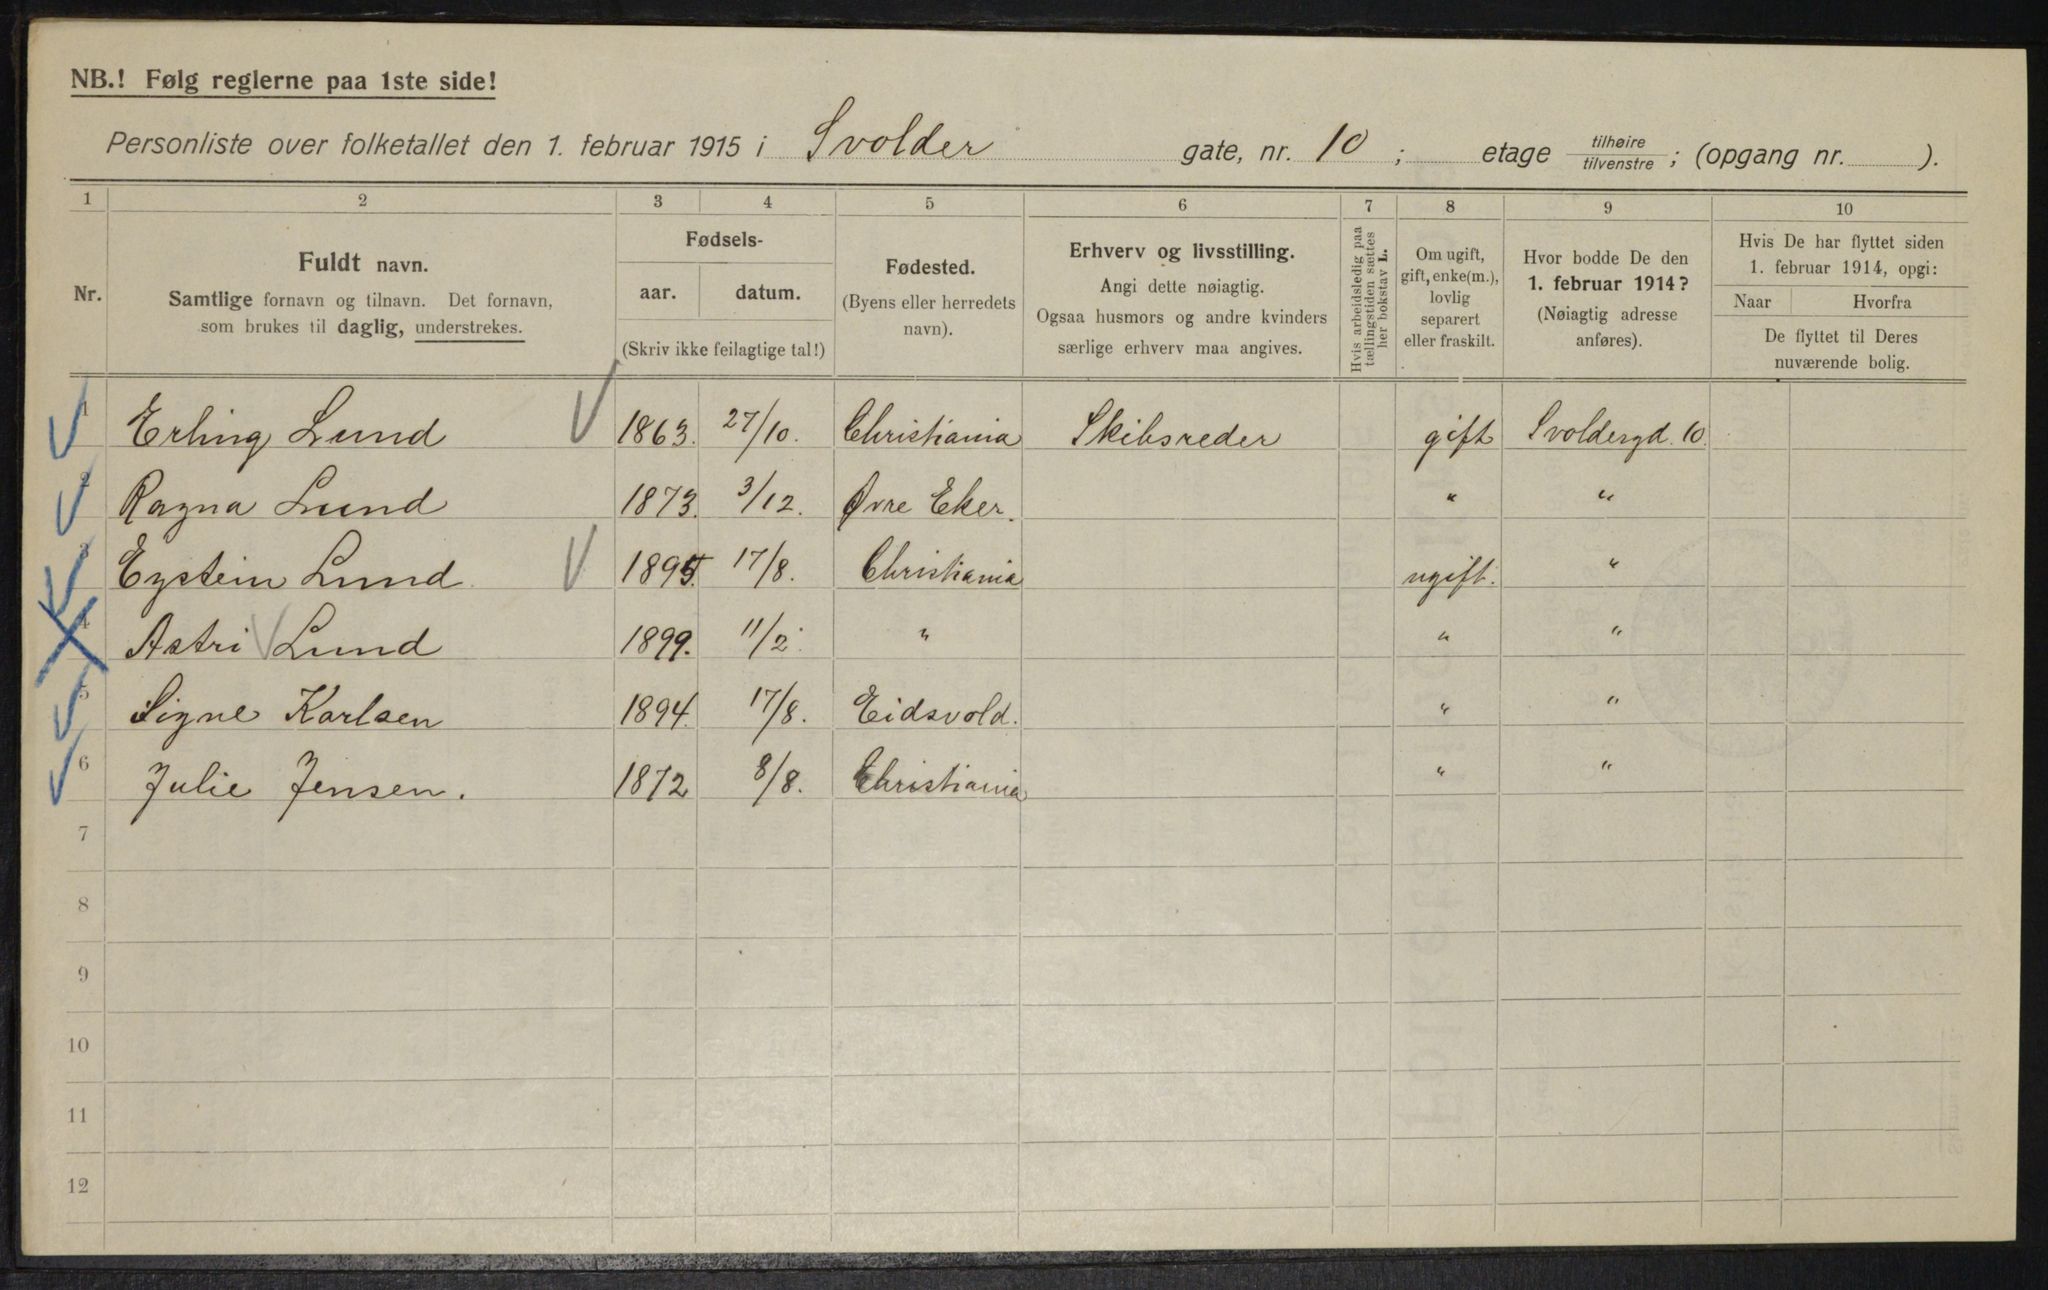 NB.! Følg reglerne paa 1ste side!
Personliste over folketallet den 1. februar 1915 i Svolder gate, nr. 10 ; etage tilhøire tilvenstre ; (opgang nr. ).
1 2 3 4 5 6 7 8 9 10
Nr.
Fuldt navn.
Samtlige fornavn og tilnavn. Det fornavn,
som brukes til daglig, understrekes.
Fødsels-
aar. datum.
(Skriv ikke feilagtige tal!)
Fødested.
(Byens eller herredets
navn).
Erhverv og livsstilling.
Angi dette nøiagtig.
Ogsaa husmors og andre kvinders
særlige erhverv maa angives.
Hvis arbeidsledig paa
tællingstiden sættes
her bokstav L.
Om ugift,
gift, enke(m.),
lovlig
separert
eller fraskilt.
Hvor bodde De den
1. februar 1914?
(Nøiagtig adresse
anføres).
Hvis De har flyttet siden
1. februar 1914, opgi:
Naar Hvorfra
De flyttet til Deres
nuværende bolig.
1 Erling Lund 1863. 27/10. Christiania Skibsreder gift Svoldergd. 10.
2 Ragna Lund 1873. 3/12. Øvre Eker. " "
3 Eystein Lund 1895. 17/8. Christiania ugift. "
4 Astri Lund 1899. 11/2. " " "
5 Signe Karlsen 1894. 17/8. Eidsvold. " "
6 Julie Jensen. 1872 8/8. Christiania " "
7
8
9
10
11
12